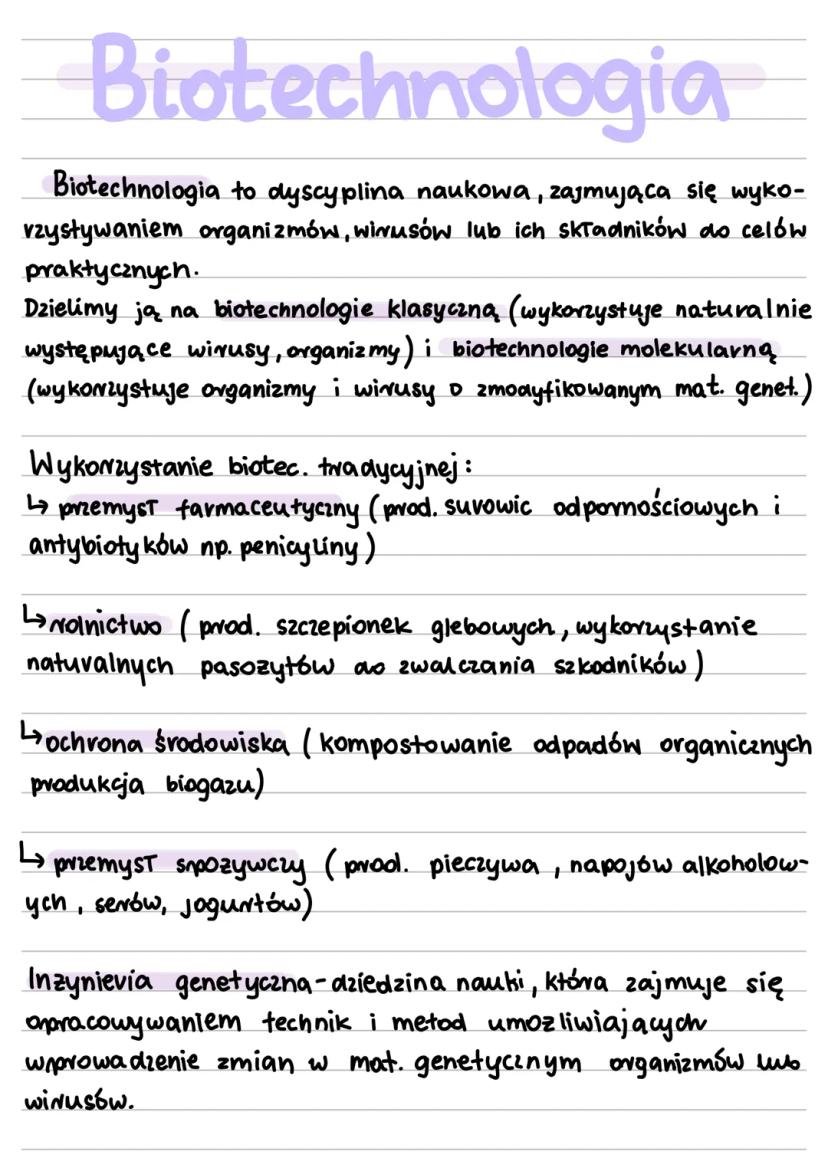 Biotechnologia
Biotechnologia to dyscyplina naukowa, zajmująca się wyko-
rzystywaniem organizmów, wirusów lub ich składników do celów
praktycznych.
Dzielimy ją na biotechnologie klasyczną (wykorzystuje naturalnie
występujące wirusy, organizmy) i biotechnologie molekularną
(wykorzystuje organizmy i wirusy o zmodyfikowanym mat. genet.)
Wykorzystanie biotec. tradycyjnej:
↳ przemysł farmaceutyczny (prod. surowic odpornościowych i
antybiotyków np. penicyliny)
↳ rolnictwo (prod. szczepionek glebowych, wykorzystanie
naturalnych pasożytów do zwalczania szkodników)
↳ ochrona środowiska (kompostowanie odpadów organicznych
produkcja biogazu)
↳ przemysł spożywczy (prod. pieczywa, napojów alkoholow-
ych, serów, jogurtów)
Inżynieria genetyczna - dziedzina nauki, która zajmuje się
opracowywaniem technik i metod umożliwiających
wprowadzenie zmian w mat. genetycznym organizmów lub
wirusów.